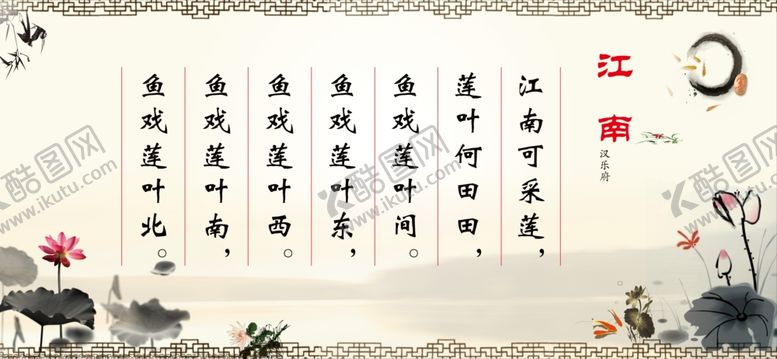 江南
汉乐府
江南可采莲，
莲叶何田田，
鱼戏莲叶间。
鱼戏莲叶东，
鱼戏莲叶西。
鱼戏莲叶南，
鱼戏莲叶北。
酷图网
www.ikutu.com
酷图网
www.ikutu.com
酷图网
www.ikutu.com